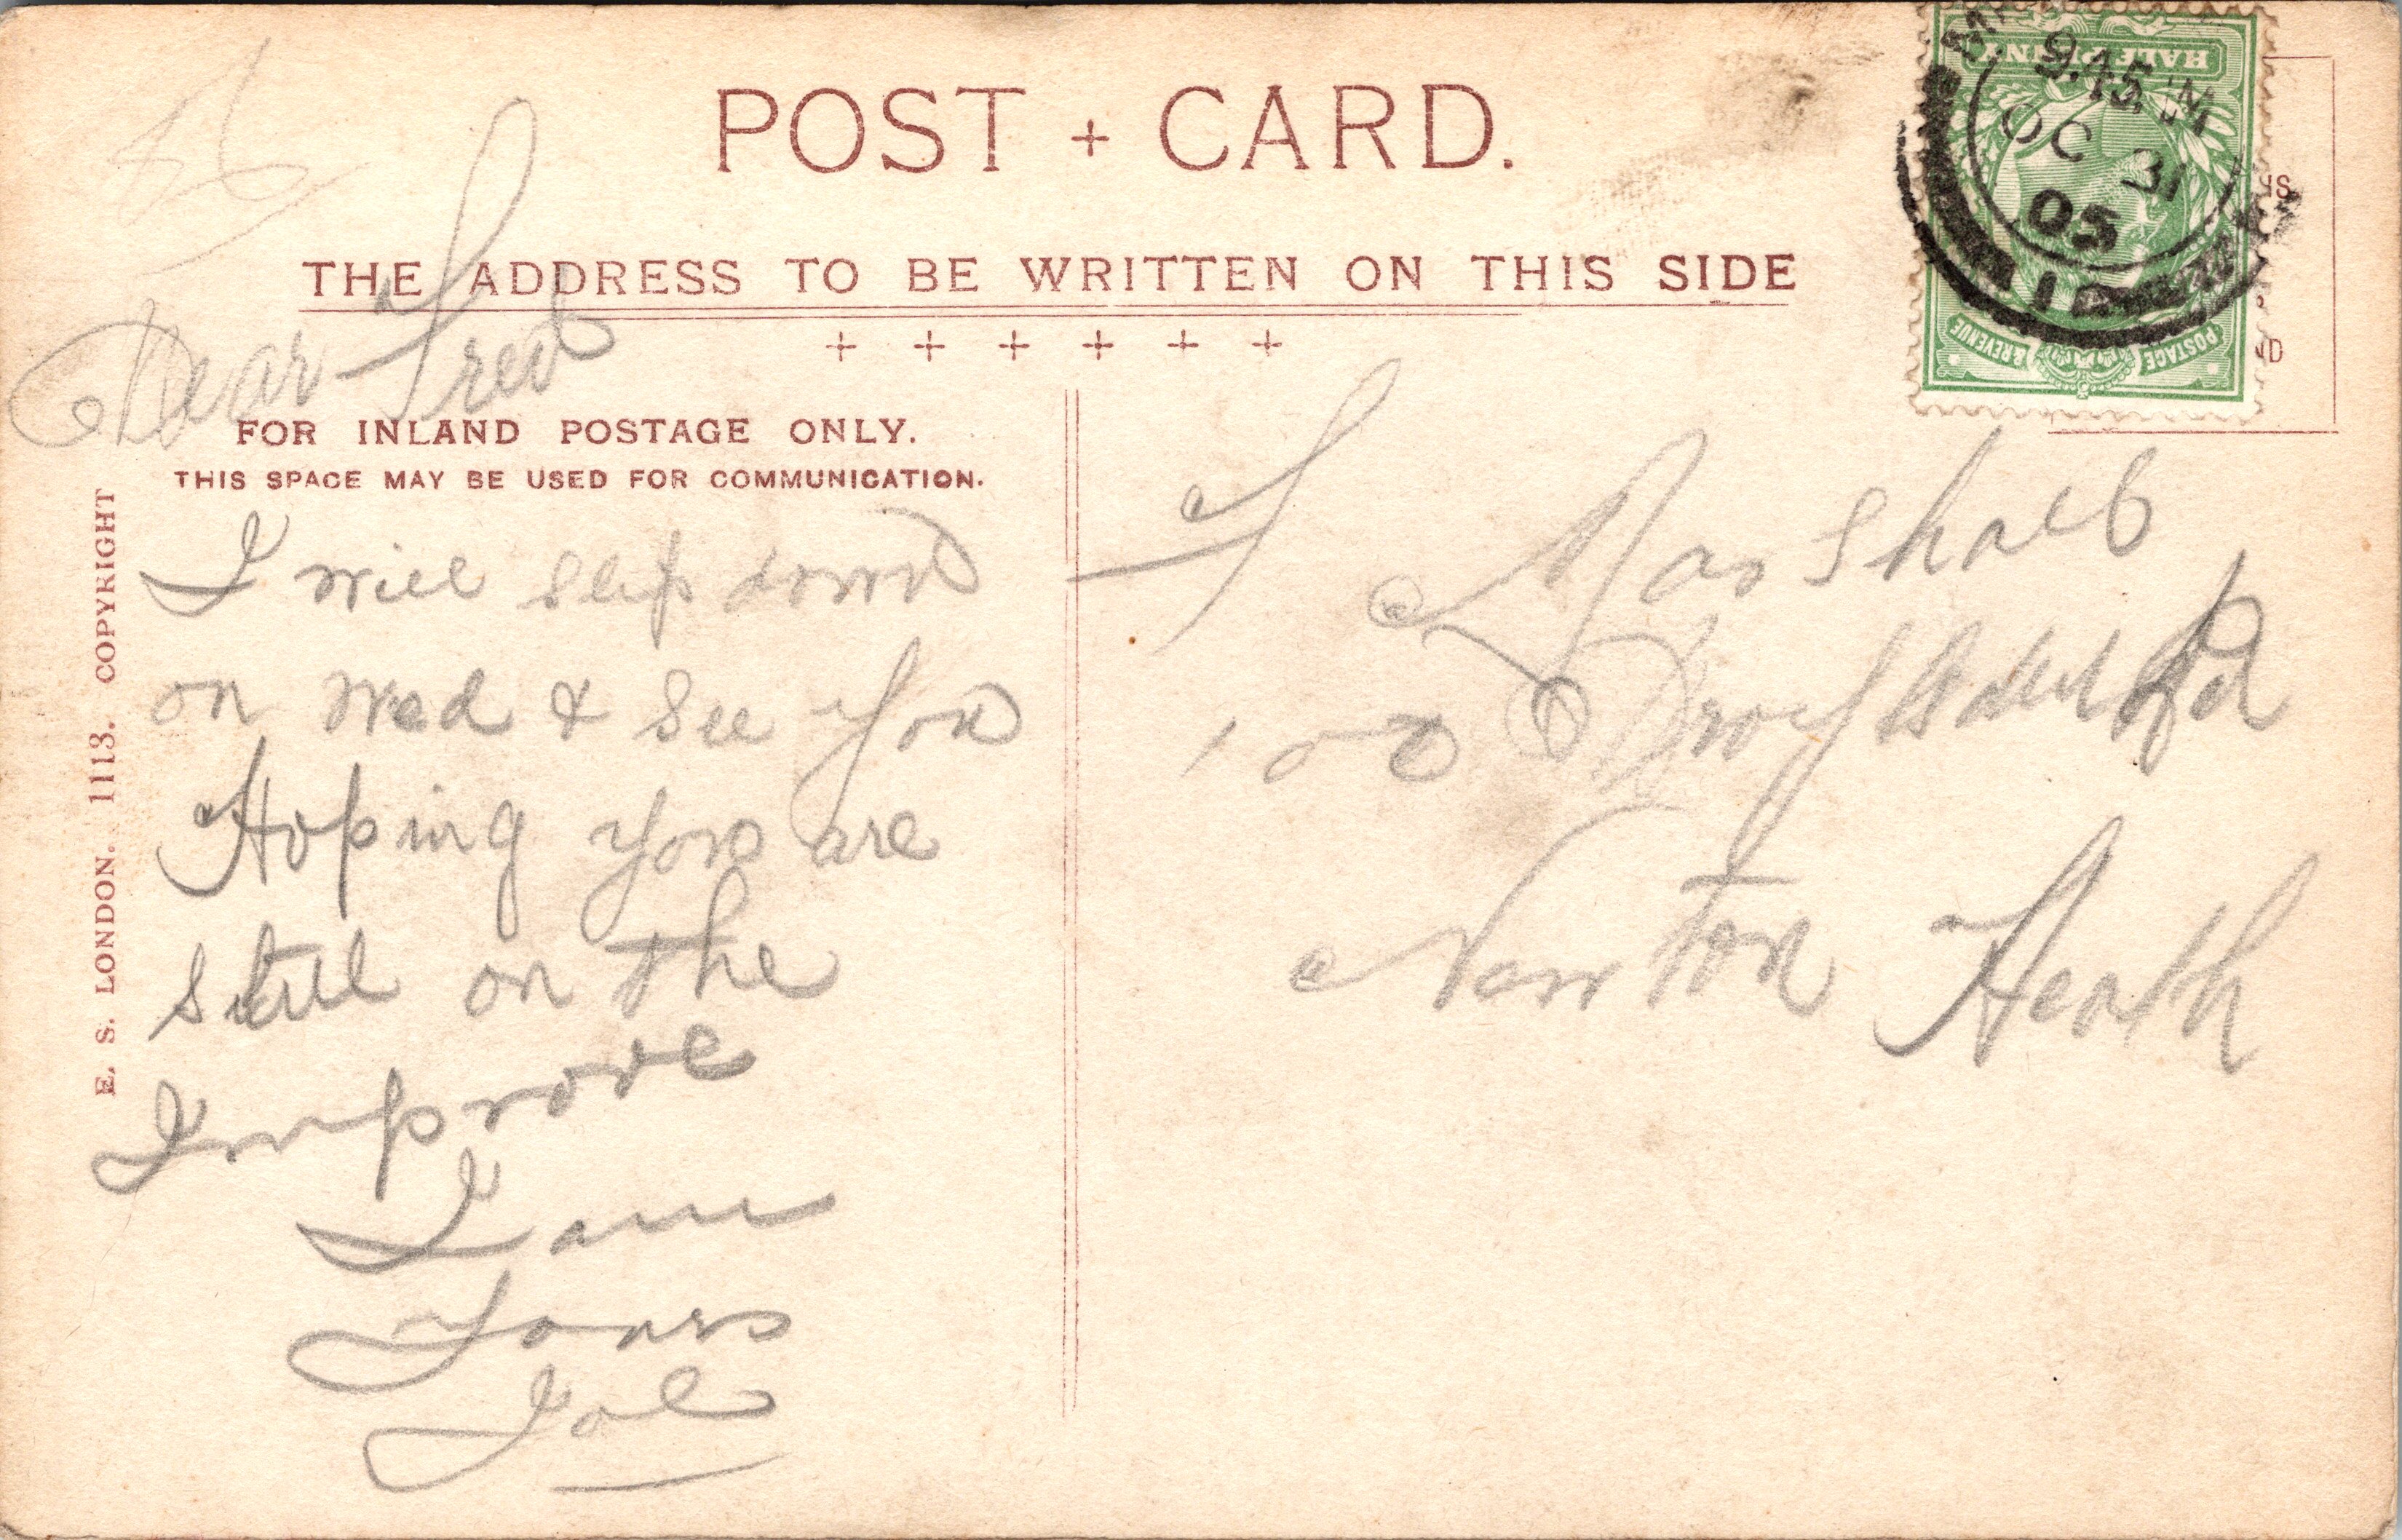 POST + CARD.
THE ADDRESS TO BE WRITTEN ON THIS SIDE
+ + + + + +
FOR INLAND POSTAGE ONLY.
THIS SPACE MAY BE USED FOR COMMUNICATION.
E. S. LONDON. 1113. COPYRIGHT
Dear Fred
I will slip down
on Wed & See You
Hoping you are
still on the
Improve
I am
Yours
Joe
F Marshall
100 Droylsden Rd
Newton Heath
HALFPENNY
POSTAGE & REVENUE
9.15
OC 31
05